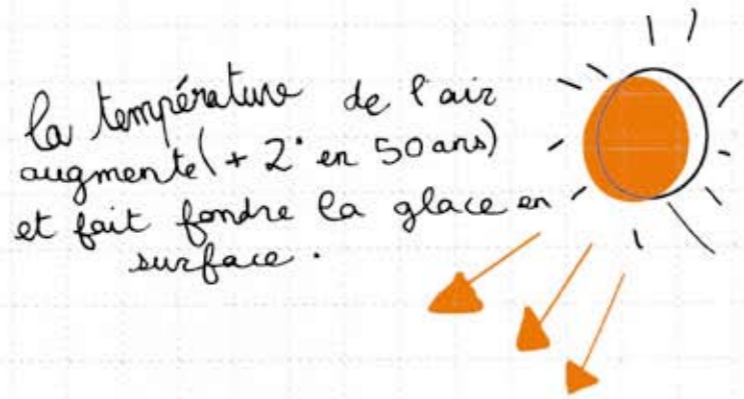 la température de l'air
augmente (+ 2° en 50 ans)
et fait fondre la glace en
surface.